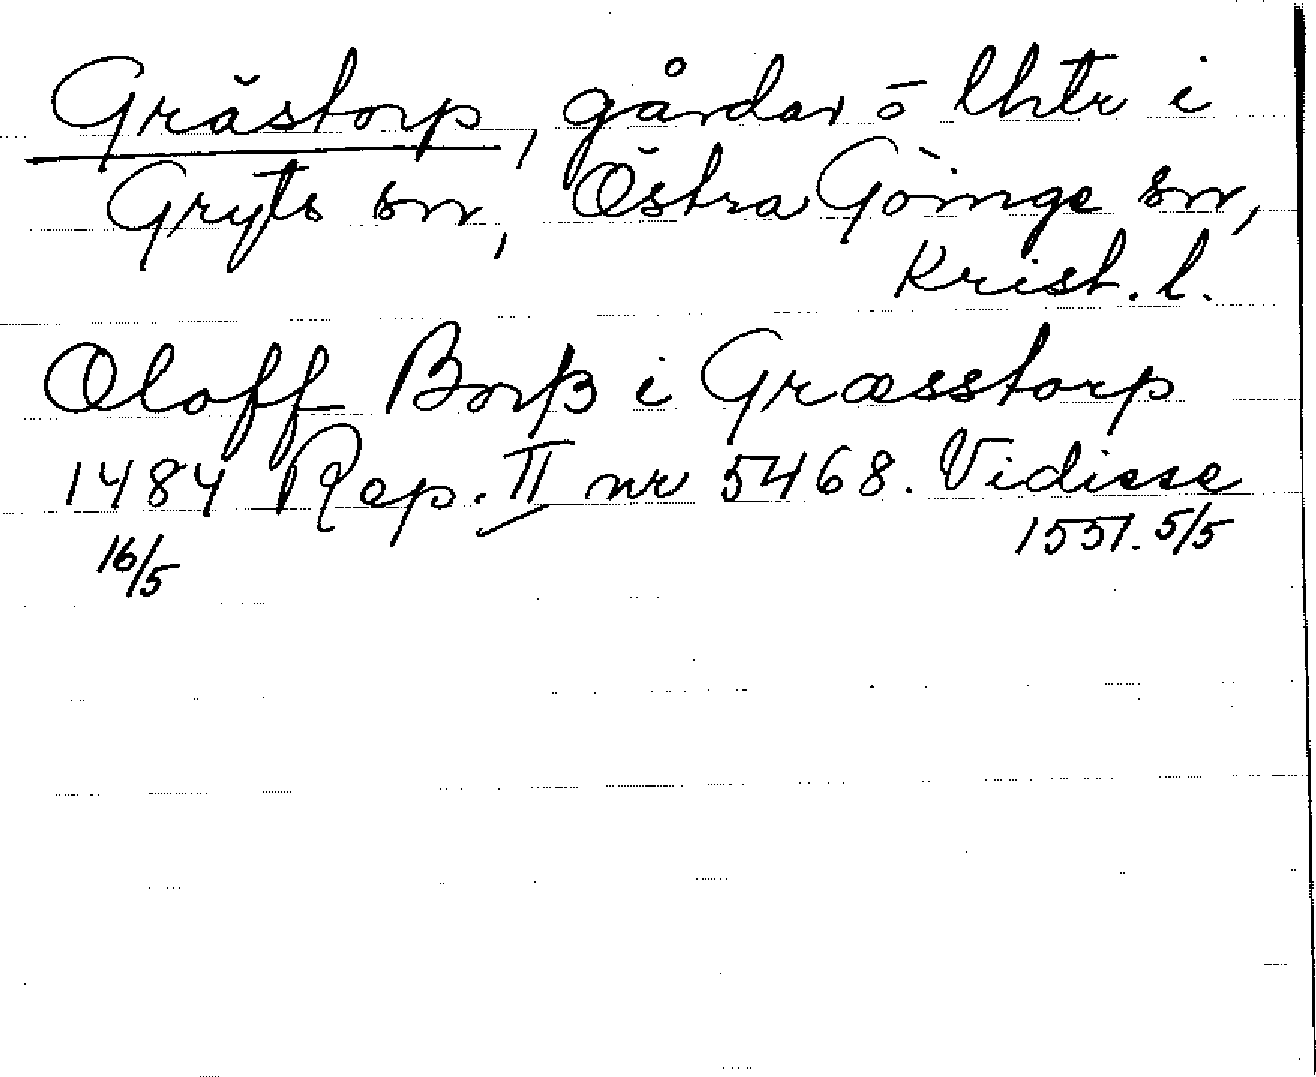 Grästorp, gårdar o lhtr i
Gryts sn, Östra Göinge sn,
Krist. l.
Oloff Borß i Græsstorp
1484 Rep. II nr 5468. Vidisse
16/5 1551. 5/5